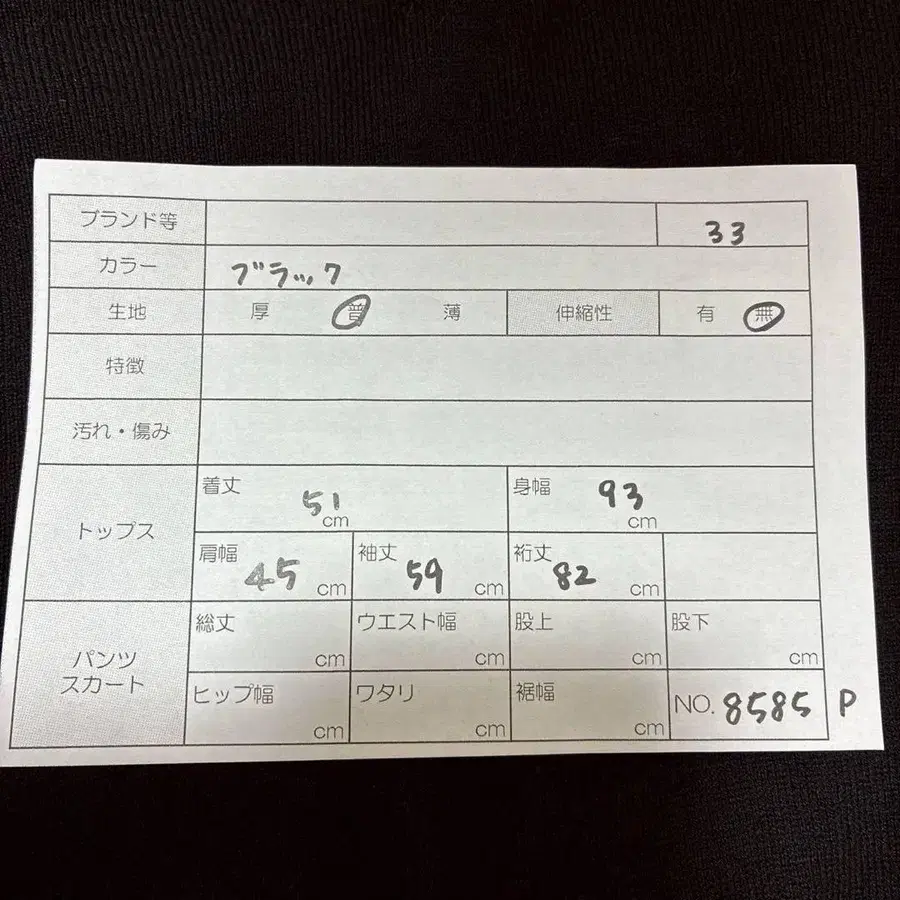 ブランド等 33
カラー ブラック
生地 厚 普 薄 伸縮性 有 無
特徴
汚れ・傷み
トップス
着丈 51 cm 身幅 93 cm
肩幅 45 cm 袖丈 59 cm 裄丈 82 cm
パンツ
スカート
総丈 cm ウエスト幅 cm 股上 cm 股下 cm
ヒップ幅 cm ワタリ cm 裾幅 cm NO. 8585 P